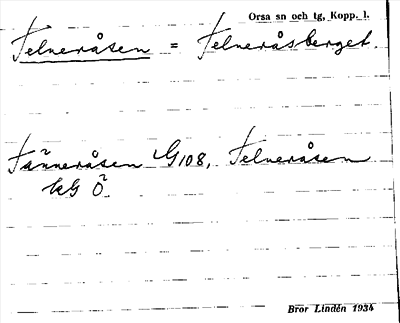 Orsa sn och tg, Kopp. l.
Telneråsen = Telneråsberget.
Tänneråsen G108, Telneråsen
kG Ö
Bror Lindén 1934